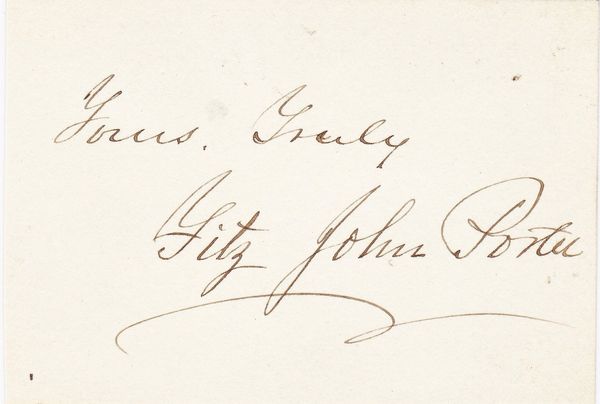 Yours. Truly
Fitz John Porter